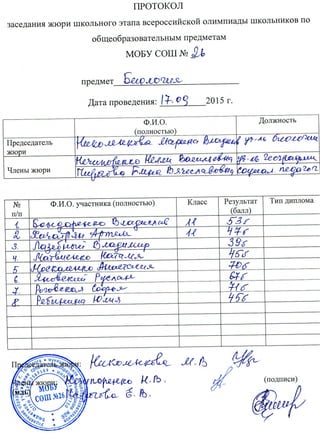 ПРОТОКОЛ
заседания жюри школьного этапа всероссийской олимпиады школьников по
общеобразовательным предметам
МОБУ СОШ № 26
предмет Биология
Дата проведения: 17.09 2015 г.
Ф.И.О. (полностью) Должность
Председатель жюри Николенкова Марина уч-ль биологии
Члены жюри Нечипоренко Нелли Васильевна уч-ль географии
Елена Вячеславовна социал. педагог
№ п/п Ф.И.О. участника (полностью) Класс Результат (балл) Тип диплома
1 Бондаренко Владислав 11 53б
2 Хачатрян Артем 11 44б
3 Лазебный Владимир 39б
4 Матвиенко Наталия 45б
5 Москаленко Анастасия 70б
6 Яновский Руслан 67б
7 Роговская София 71б
8 Рябинина Юлия 45б
Председатель жюри: Николенкова М.В
Члены жюри: Нечипоренко Н.В. (подписи)
Е.В.
МОБУ
СОШ №26